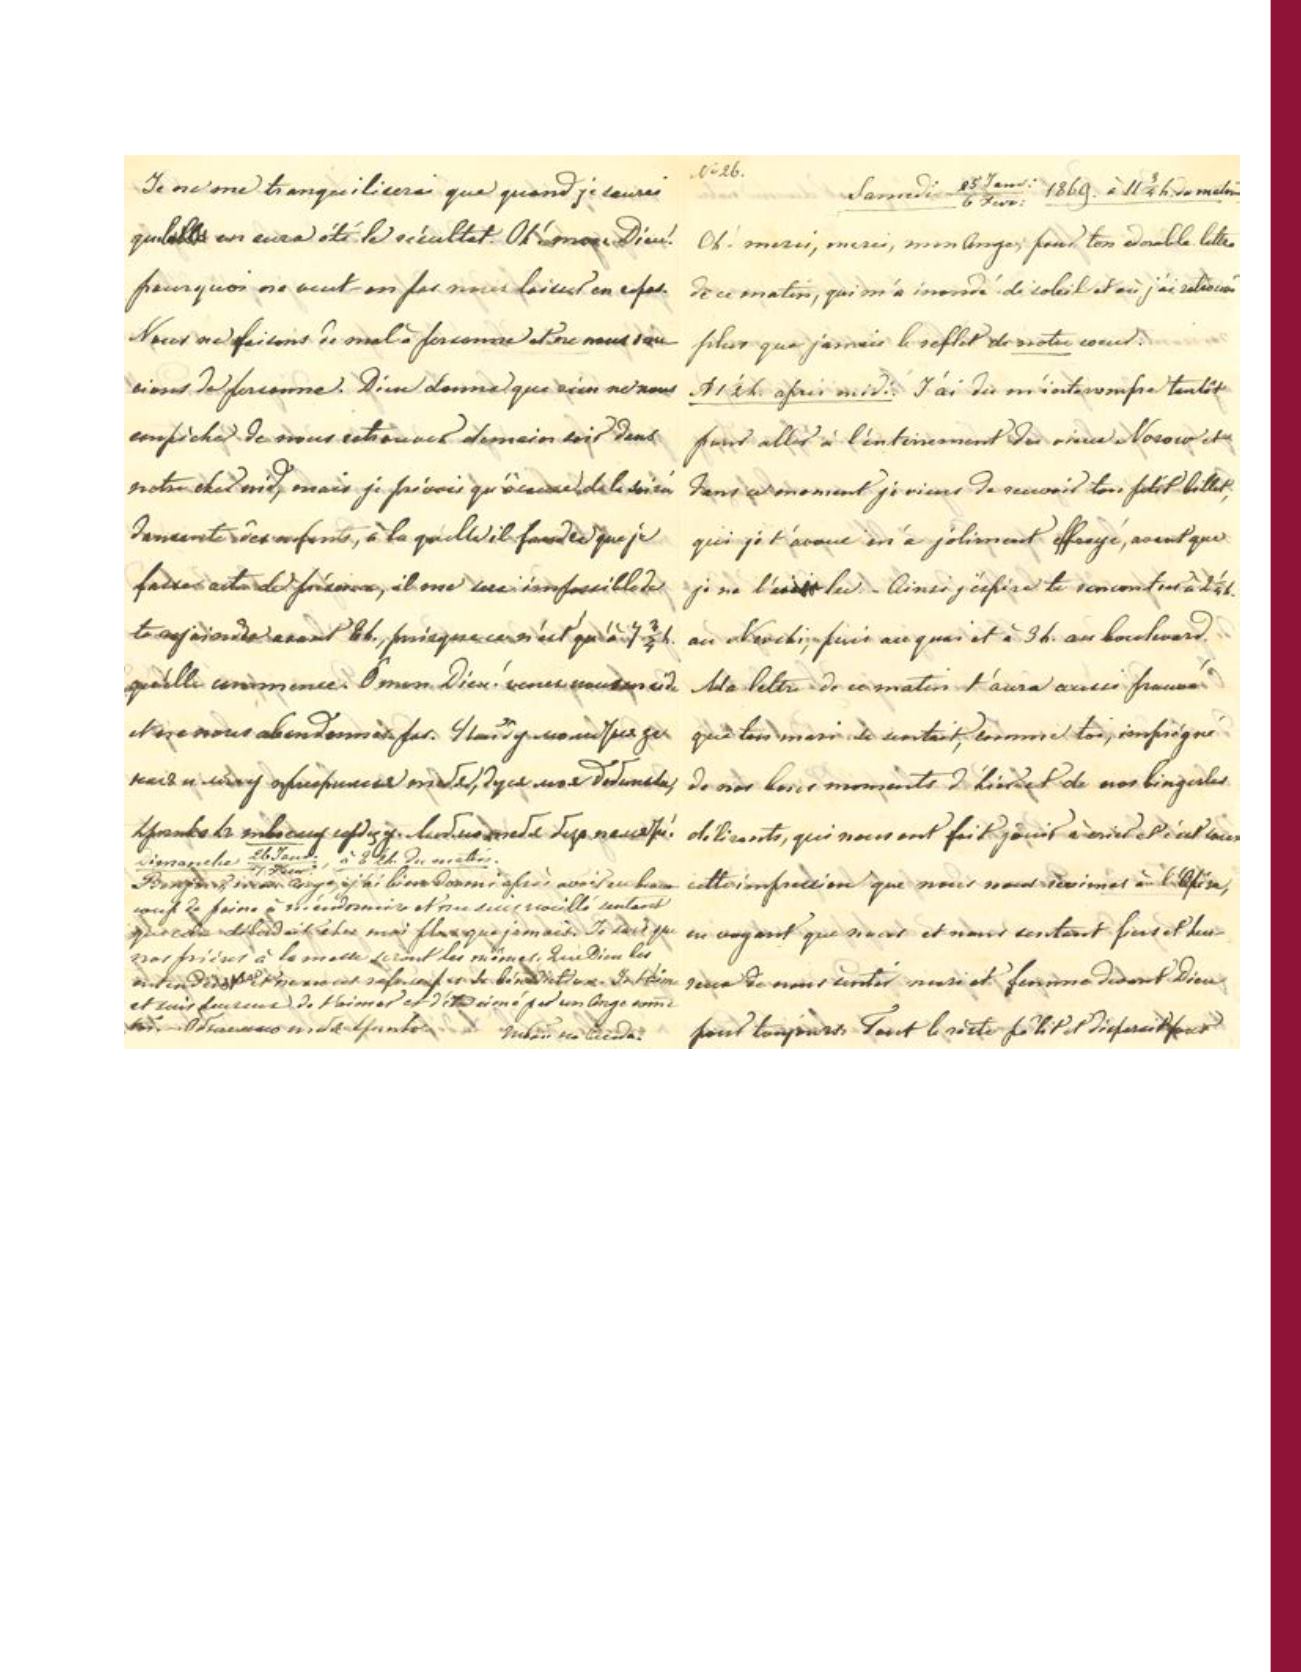 Je ne me tranquiliserai que quand je saurai
quel en aura été le résultat. Oh! mon Dieu!
pourquoi ne veut-on pas nous laisser en repos.
Nous ne faisons de mal à personne et ne nous sou-
cions de personne. Dieu donne que rien ne nous
empêche de nous retrouver demain soir dans
notre cher nid, mais je prévois qu'à cause de la soirée
dansante des enfants, à la quelle il faudra que je
fasse acte de présence, il me sera impossible de
te rejoindre avant 8 h., puisque ce n'est qu'à 7 3/4 h.
qu'elle commence. Ô mon Dieu! venez nous en aide
et ne nous abandonnez pas.
Dimanche 26 Janv: / 7 Févr:, à 8 h. du matin.
Bonjour, cher Ange, j'ai bien dormi après avoir eu beau-
coup de peine à m'endormir et me suis réveillé sentant
que cela débordait chez moi plus que jamais. Je sais que
nos prières à la messe seront les mêmes. Que Dieu les
entende et ne nous refuse pas Sa bénédiction. Je t'aime
et suis heureux de t'aimer et d'être aimé par un Ange comme
toi.
No 26.
Samedi 25 Janv: / 6 Févr: 1869. à 11 3/4 h. du matin
Oh! merci, merci, mon Ange, pour ton adorable lettre
de ce matin, qui m'a inondé de soleil et où j'ai retrouvé
plus que jamais le reflet de notre coeur.
A 1 1/2 h. après midi. J'ai du m'interompre tantôt
pour aller à l'enterrement du vieux et
dans ce moment je viens de recevoir ton petit billet,
qui je t'avoue m'a joliment effrayé, avant que
je ne l'eus lu. - Ainsi j'espère te rencontrer à 2 1/4 h.
au, puis au quai et à 3 h. au boulevard.
Ma lettre de ce matin t'aura aussi prouvé
que ton mari se sentait, comme toi, imprégné
de nos bons moments d'hier et de nos bingerles
délirants, qui nous ont fait jouir à crier et c'est sous
cette impression que nous nous revimes à l'Opéra,
ne voyant que nous et nous sentant fiers et heu-
reux de nous sentir mari et femme devant Dieu
pour toujours. Tout le reste pâlit et disparait pour